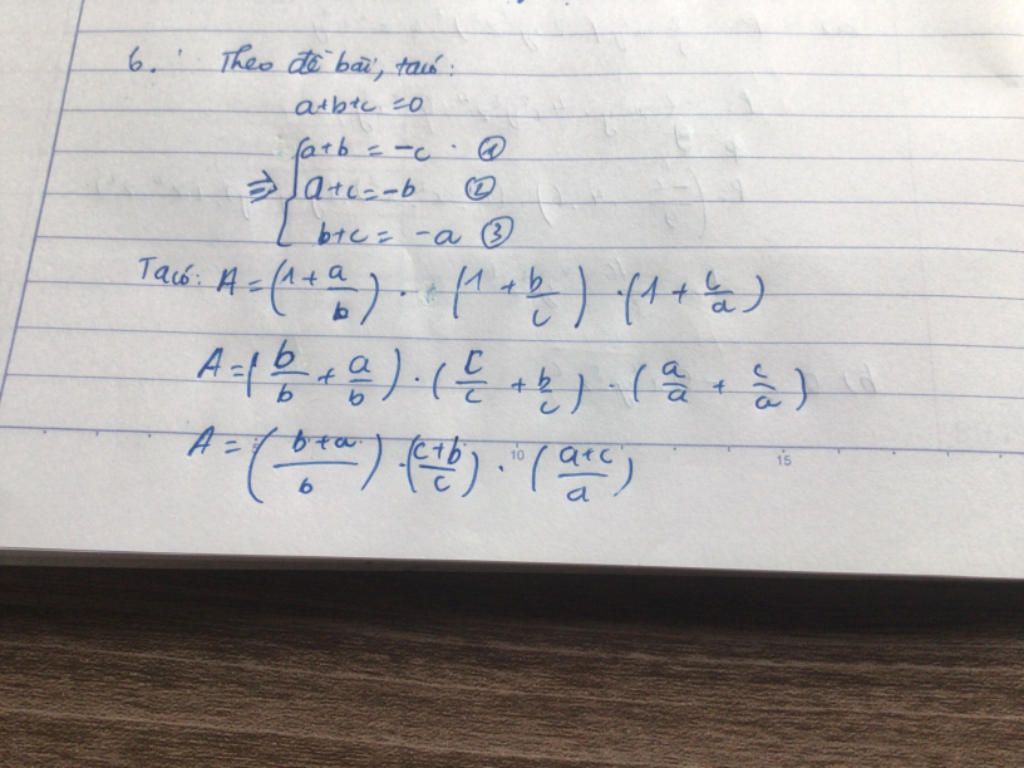 6. Theo đề bài, ta có:
a+b+c =0
⇒ { a+b = -c ①
a+c = -b ②
b+c = -a ③
Ta có: A = (1 + a/b) · (1 + b/c) · (1 + c/a)
A = (b/b + a/b) · (c/c + b/c) · (a/a + c/a)
A = (b+a/b) · (c+b/c) · (a+c/a)
10 15